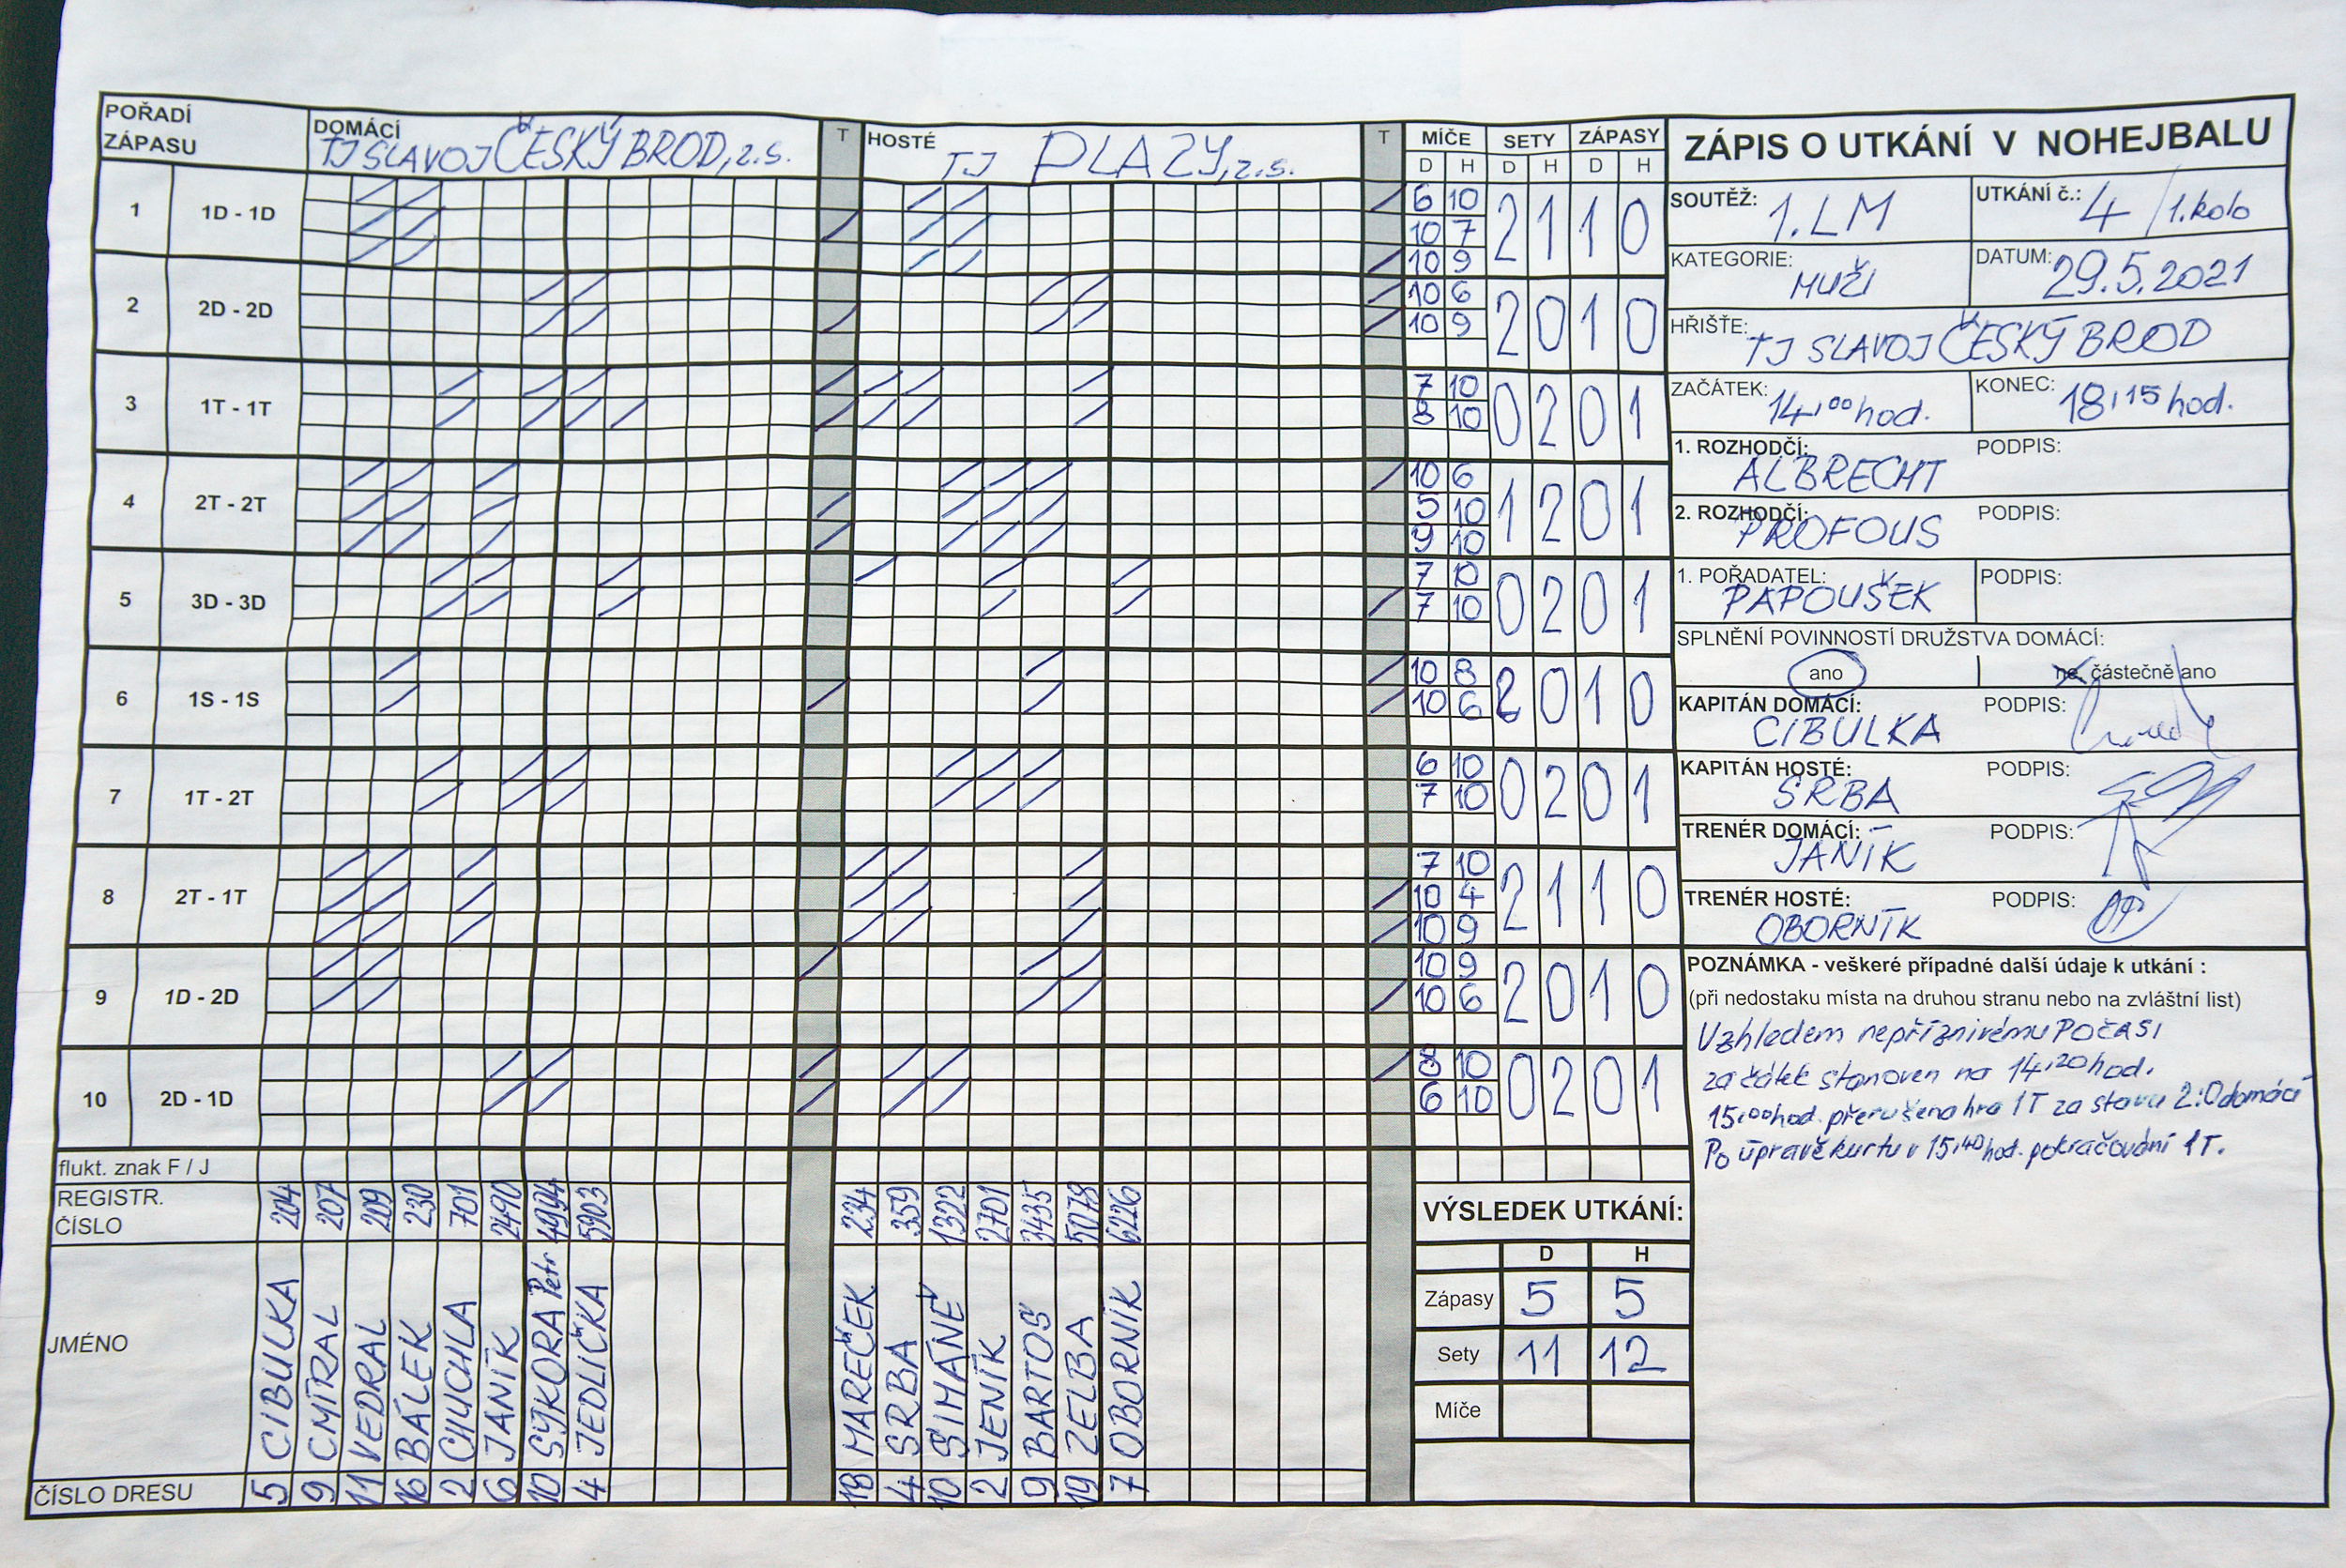 POŘADÍ ZÁPASU
DOMÁCÍ TJ SLAVOJ ČESKÝ BROD, z.s.
T
HOSTÉ TJ PLAZY, z.s.
T
MÍČE SETY ZÁPASY
D H D H D H
1 1D - 1D
6 10
10 7
10 9
2 1 1 0
2 2D - 2D
10 6
10 9
2 0 1 0
3 1T - 1T
7 10
8 10
0 2 0 1
4 2T - 2T
10 6
5 10
9 10
1 2 0 1
5 3D - 3D
7 10
7 10
0 2 0 1
6 1S - 1S
10 8
10 6
2 0 1 0
7 1T - 2T
6 10
7 10
0 2 0 1
8 2T - 1T
7 10
10 4
10 9
2 1 1 0
9 1D - 2D
10 9
10 6
2 0 1 0
10 2D - 1D
8 10
6 10
0 2 0 1
flukt. znak F / J
REGISTR. ČÍSLO
204 207 209 230 701 2490 4994 5903
234 359 1322 2701 3435 5078 6226
JMÉNO
CIBULKA
CMÍRAL
VEDRAL
BÁLEK
CHUCHLA
JANÍK
SÝKORA Petr
JEDLIČKA
MAREČEK
SRBA
ŠIMÁNĚ
JENÍK
BARTOŠ
ZELBA
OBORNÍK
ČÍSLO DRESU
5 9 11 16 2 6 10 4
18 4 10 2 9 19 7
VÝSLEDEK UTKÁNÍ:
D H
Zápasy 5 5
Sety 11 12
Míče
ZÁPIS O UTKÁNÍ V NOHEJBALU
SOUTĚŽ: 1. LM
UTKÁNÍ č.: 4 / 1. kolo
KATEGORIE: MUŽI
DATUM: 29.5.2021
HŘIŠTĚ: TJ SLAVOJ ČESKÝ BROD
ZAČÁTEK: 14,00 hod.
KONEC: 18,15 hod.
1. ROZHODČÍ: ALBRECHT PODPIS:
2. ROZHODČÍ: PROFOUS PODPIS:
1. POŘADATEL: PAPOUŠEK PODPIS:
SPLNĚNÍ POVINNOSTÍ DRUŽSTVA DOMÁCÍ:
ano ne, částečně ano
KAPITÁN DOMÁCÍ: CIBULKA PODPIS:
KAPITÁN HOSTÉ: SRBA PODPIS:
TRENÉR DOMÁCÍ: JANÍK PODPIS:
TRENÉR HOSTÉ: OBORNÍK PODPIS:
POZNÁMKA - veškeré případné další údaje k utkání :
(při nedostaku místa na druhou stranu nebo na zvláštní list)
Vzhledem nepříznivému POČASI
začátek stanoven na 14,20 hod.
15,00 hod. přerušena hra 1T za stavu 2:0 domácí
Po úpravě kurtu v 15,40 hod. pokračování 1T.